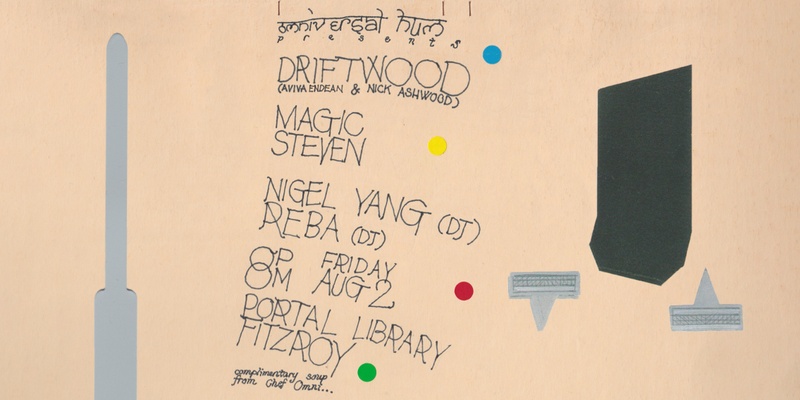 omniversal hum
presents
DRIFTWOOD
(AVIVA ENDEAN & NICK ASHWOOD)
MAGIC
STEVEN
NIGEL YANG (DJ)
REBA (DJ)
8P FRIDAY
M AUG 2
PORTAL LIBRARY
FITZROY
complimentary soup
from Chef Omni...